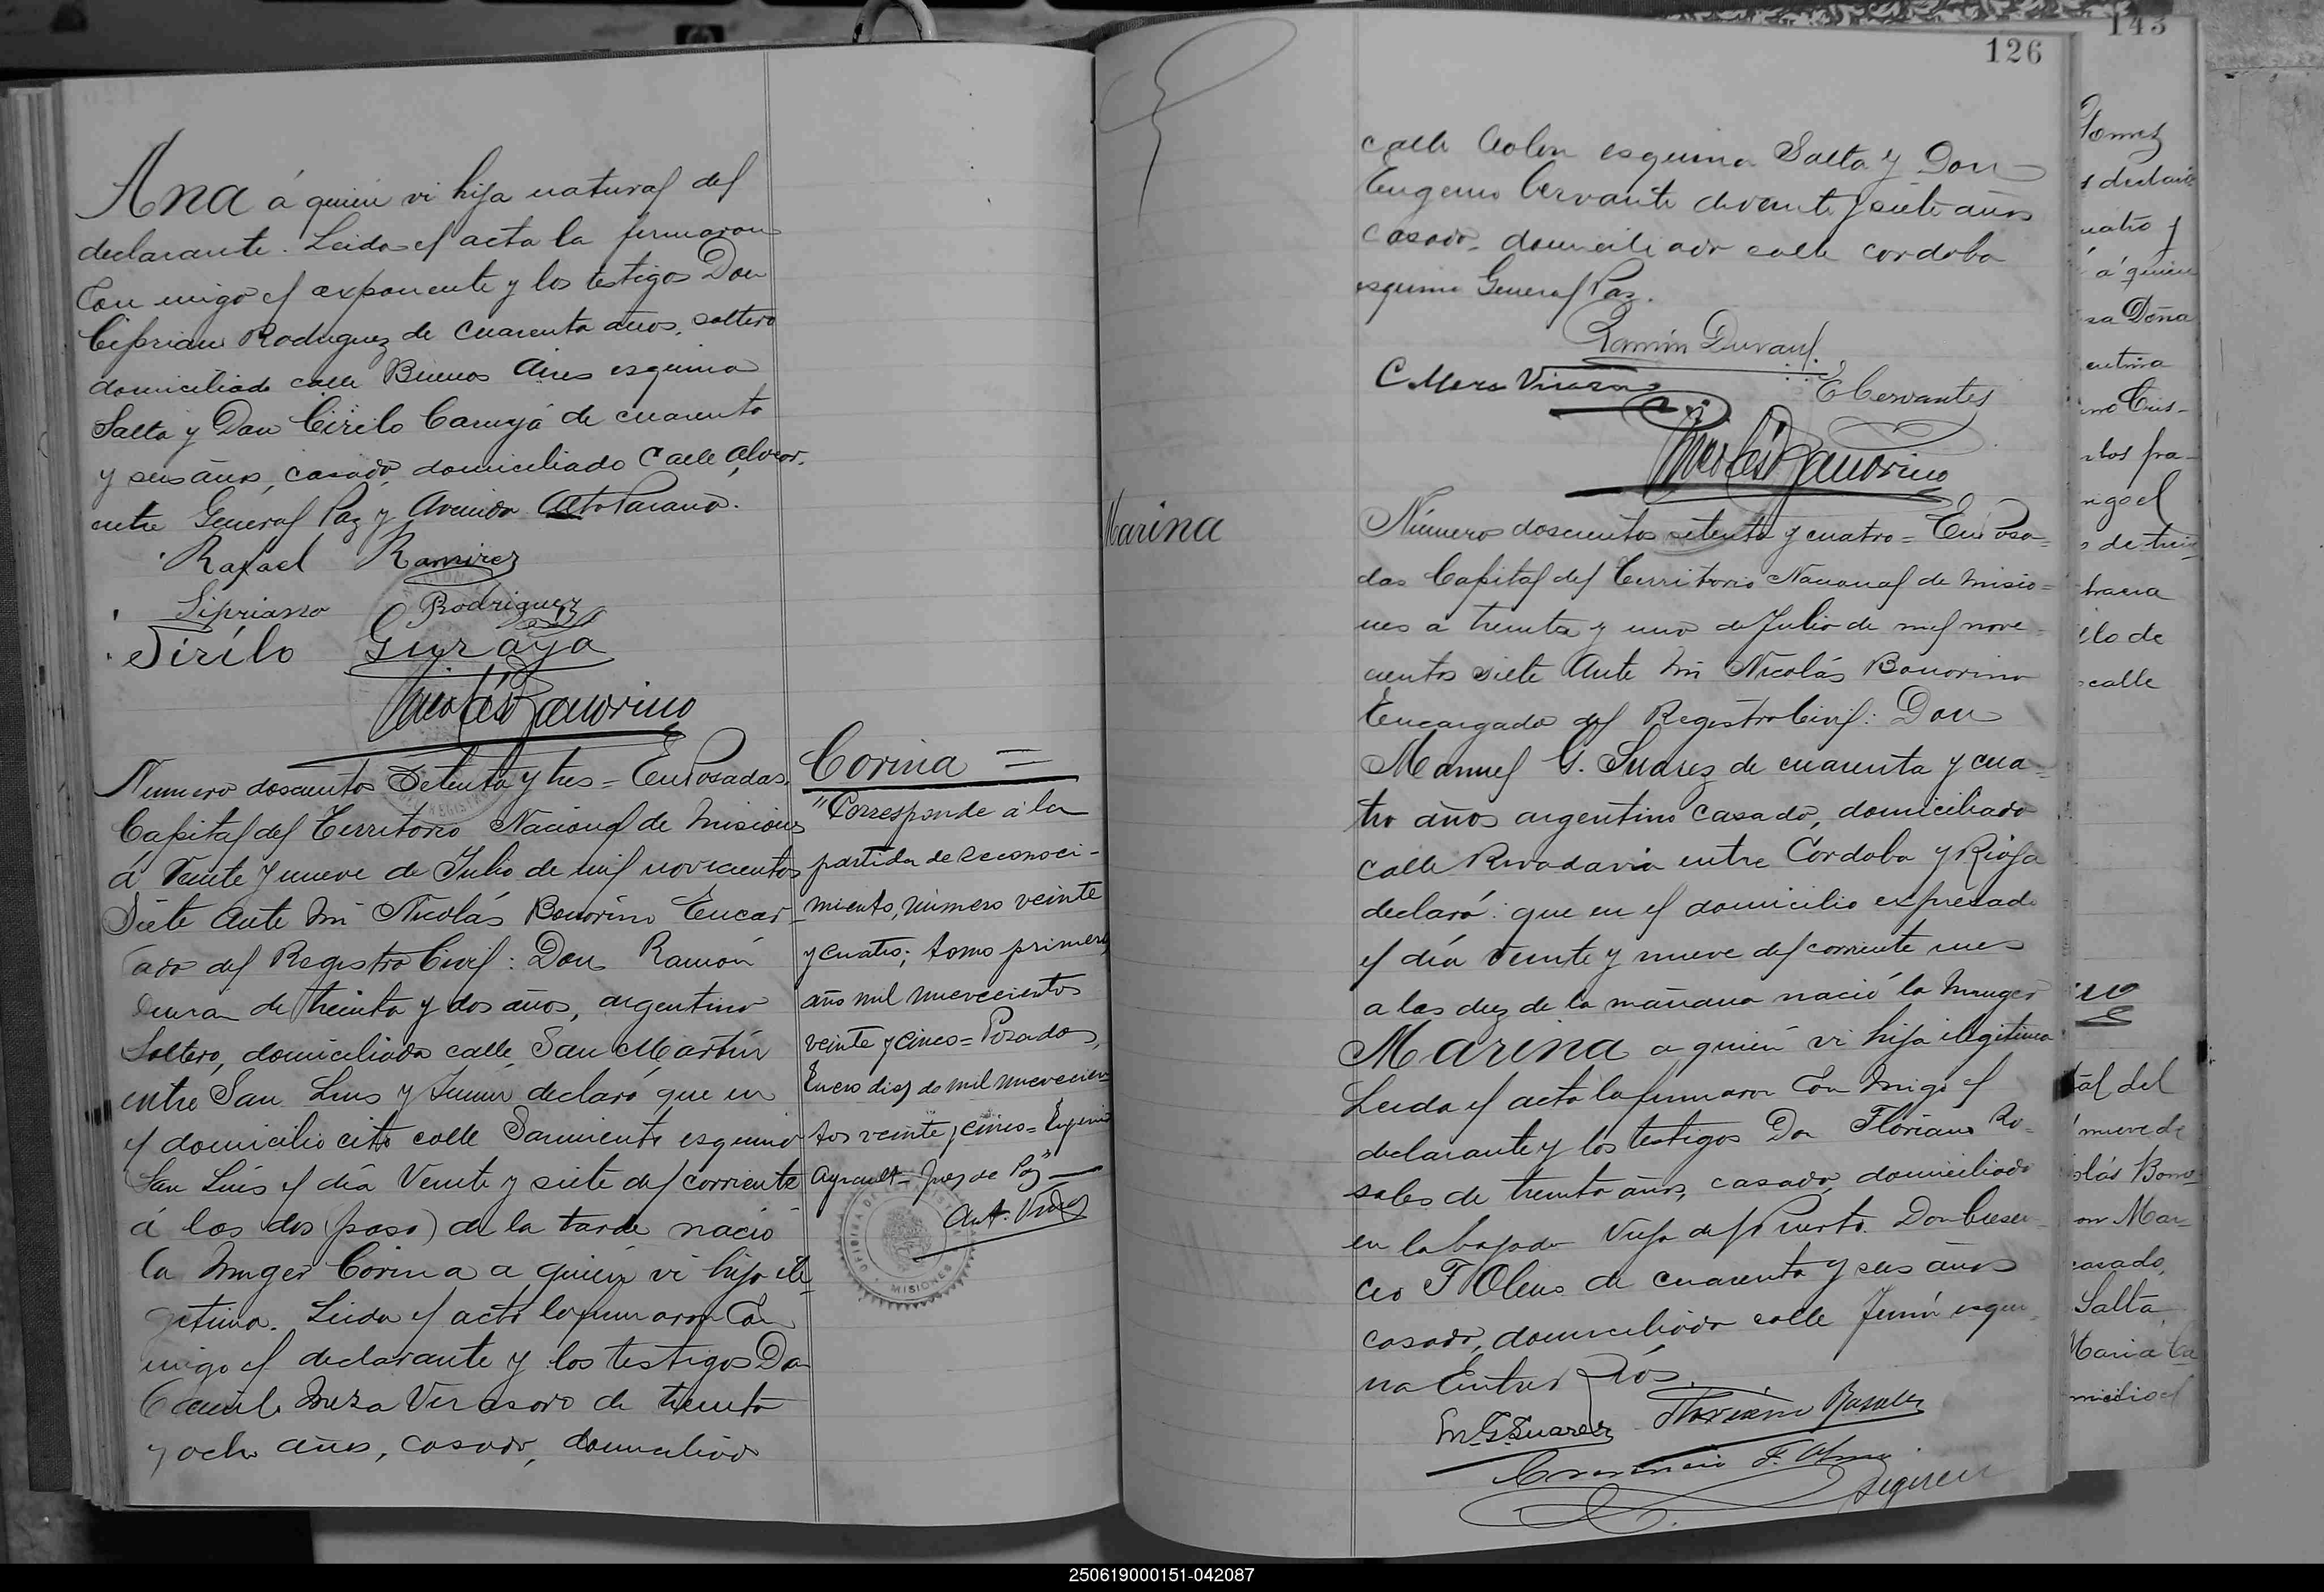 Ana á quien vi hija natural del
declarante. Leida el acta la firmaron
Con migo el exponente y los testigos Don
Ciprian Rodriguez de cuarenta años, soltero
domiciliado calle Buenos Aires esquina
Salta y Don Cirilo de cuarenta
y seis años, casado, domiciliado Calle Alvear.
entre General Paz y Avenida Alto Paraná.
Rafael Ramirez
Sipriano Rodriguez
Sirilo
Nicolás Bonorino
Numero doscientos Setenta y tres = En Posadas,
Capital del Territorio Nacional de Misiones
á Veinte y nueve de Julio de mil novecientos
Siete Ante Mi Nicolás Bonorino Encar-
gado del Registro Civil: Don Ramón
Duran de treinta y dos años, argentino
Soltero, domiciliado calle San Martin
entre San Luis y Junin declaró que en
el domicilio cito calle Sarmiento esquina
San Luis el día Veinte y siete del corriente
á las dos (paso) de la tarde nació
la Muger Corina a quien vi hija ile-
gitima. Leida el acta la firmaron Con
migo el declarante y los testigos Don
Camilo Meza Virasoro de treinta
y ocho años, casado, domiciliado
Corina =
"Corresponde á la
partida de reconoci-
miento, número veinte
y cuatro; tomo primero,
año mil nuevecientos
veinte y cinco = Posadas,
Enero diez de mil nuevecien
tos veinte y cinco = Eugenio
Ayrault - Juez de Paz" —
MISIONES
126
calle Colon esquina Salta y Don
Eugenio Cervante de veinte y siete años
casado, domiciliado calle cordoba
esquina General Paz.
Ramón Duran
C Meza Virasoro
E Cervantes
Nicolás Bonorino
Marina
Número doscientos setenta y cuatro = En Posa=
das Capital del Territorio Nacional de Misio=
nes a treinta y uno de Julio de mil nove-
cientos siete Ante Mi Nicolás Bonorino
Encargado del Registro Civil: Don
Manuel G. Suarez de cuarenta y cua-
tro años argentino casado, domiciliado
calle Rivadavia entre Córdoba y Rioja
declaró: que en el domicilio expresado
el día Veinte y nueve del corriente mes
a las diez de la mañana nació la Muger
Marina a quien vi hija ilegitima
Leida el acta la firmaron Con Migo el
declarante y los testigos Don Floriano Ro-
sales de treinta años, casado, domiciliado
en la bajada Vieja del Puerto. Don Cresen-
cio F Olmo de cuarenta y seis años
casado, domiciliado calle Junin esqui-
na Entre Ríos.
M. G. Suarez Floriano Rosales
Cresencio F. Olmo
siguen
143
Gomez
s declaró
uatro y
á quien
sa Doña
entina
los pra-
nigo el
s de trein
elo de
calle
tal del
nueve de
olás Bono-
on Mar-
casado,
Salta,
Maria Ca
micilio el
250619000151-042087